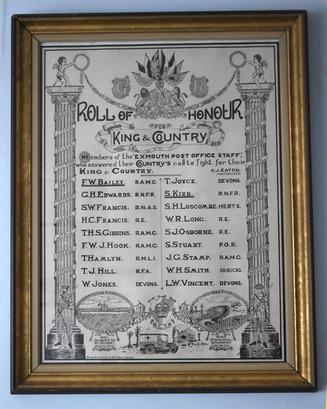 G R
ROLL OF HONOUR
FOR
KING & COUNTRY
Members of the "EXMOUTH POST OFFICE STAFF,"
who answered their COUNTRY'S call to fight for their
KING & COUNTRY.
C.J. EATON,
F.W. BAILEY. R.A.M.C.
G.H. EDWARDS. R.N.F.R.
S.W. FRANCIS. R.N.A.S.
H.C. FRANCIS. R.E.
T.H.S. GIBBINS. R.A.M.C.
F.W.J. HOOK. R.A.M.C.
T. HAMLYN. R.M.L.I.
T.J. HILL. R.F.A.
W. JONES. DEVONS.
T. JOYCE. DEVONS.
S. KIRK. R.N.F.R.
S.H. LUSCOMBE. HERTS.
W.R. LONG. R.E.
S.J. OSBORNE. R.E.
S. STUART. P.O.R.
J.G. STAMP. R.A.M.C.
W.H. SMITH. OX-BUCKS.
L.W. VINCENT. DEVONS.